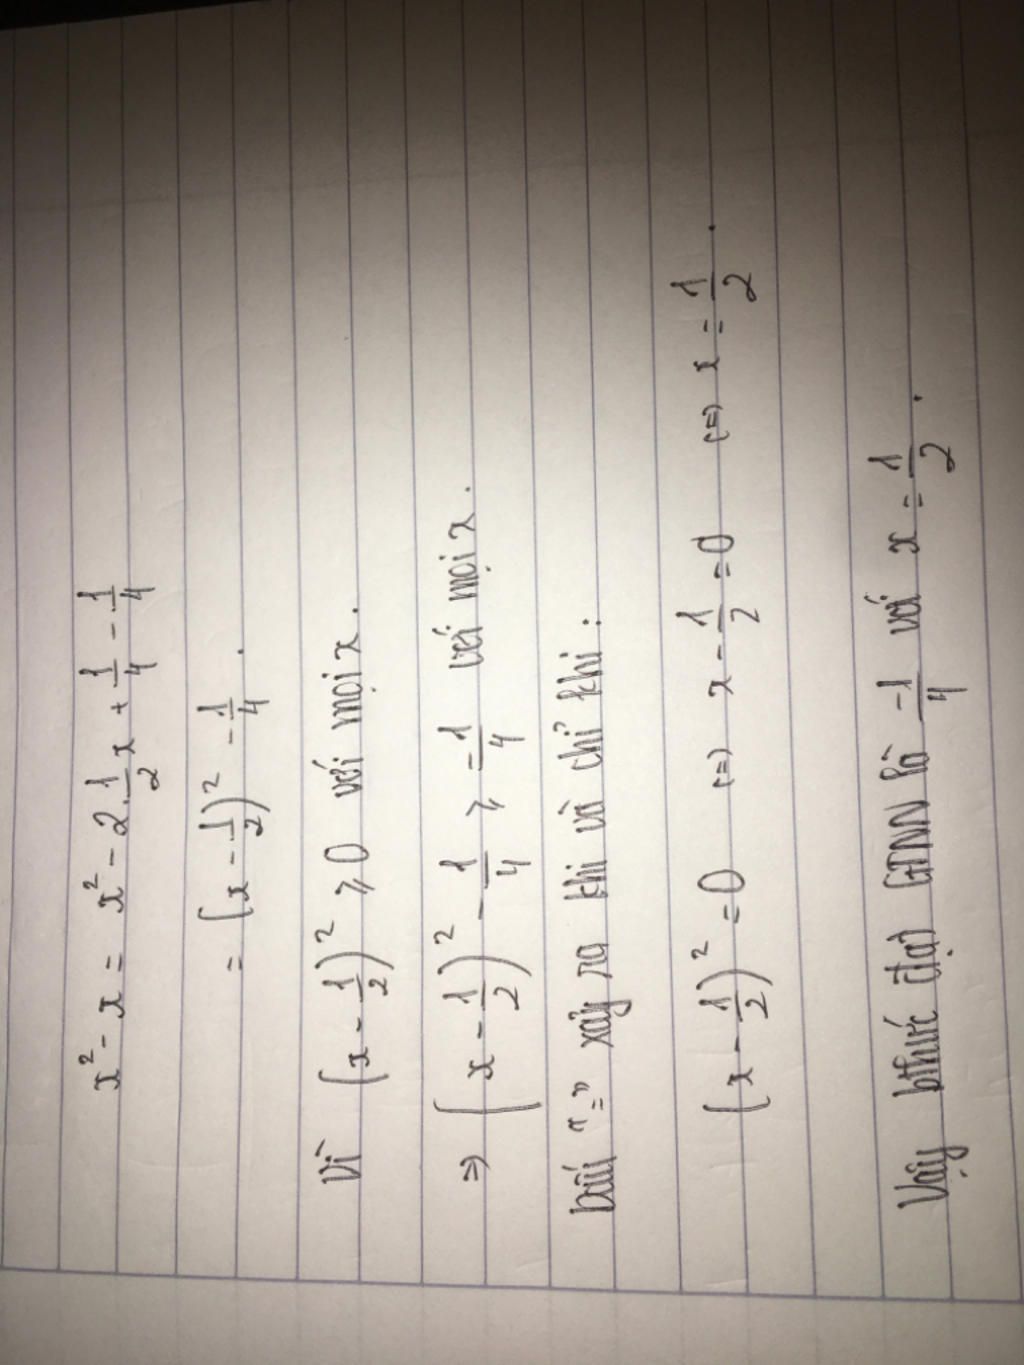 x² - x = x² - 2.1/2 x + 1/4 - 1/4
= (x - 1/2)² - 1/4.
Vì (x - 1/2)² ⩾ 0 với mọi x.
⇒ (x - 1/2)² - 1/4 ⩾ -1/4 với mọi x.
Dấu "=" xảy ra khi và chỉ khi:
(x - 1/2)² = 0 (=) x - 1/2 = 0 (=) x = 1/2.
Vậy bthức đạt GTNN là -1/4 với x = 1/2.